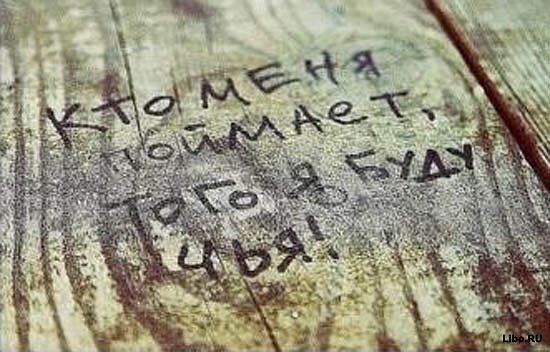 Кто меня
поймает,
того я буду
чья!
Libo.RU